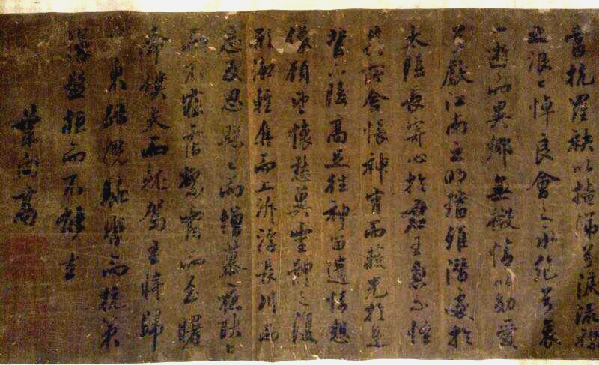 當抗羅袂以掩涕兮淚流襟
之浪浪悼良會之永絕兮哀
一逝而異鄉無微情以効愛
兮獻江南之明璫雖潛處於
太陰長寄心於君王忽不悟
其所舍悵神宵而蔽光於是
背下陵高足往神留遺情想
像顧望懷愁冀靈體之復
形御輕舟而上泝浮長川而
忘反思綿綿而增慕夜耿耿
而不寐霑繁霜而至曙
命僕夫而就駕吾將歸
東路攬騑轡而抗策
悵盤桓而不能去
葉向高